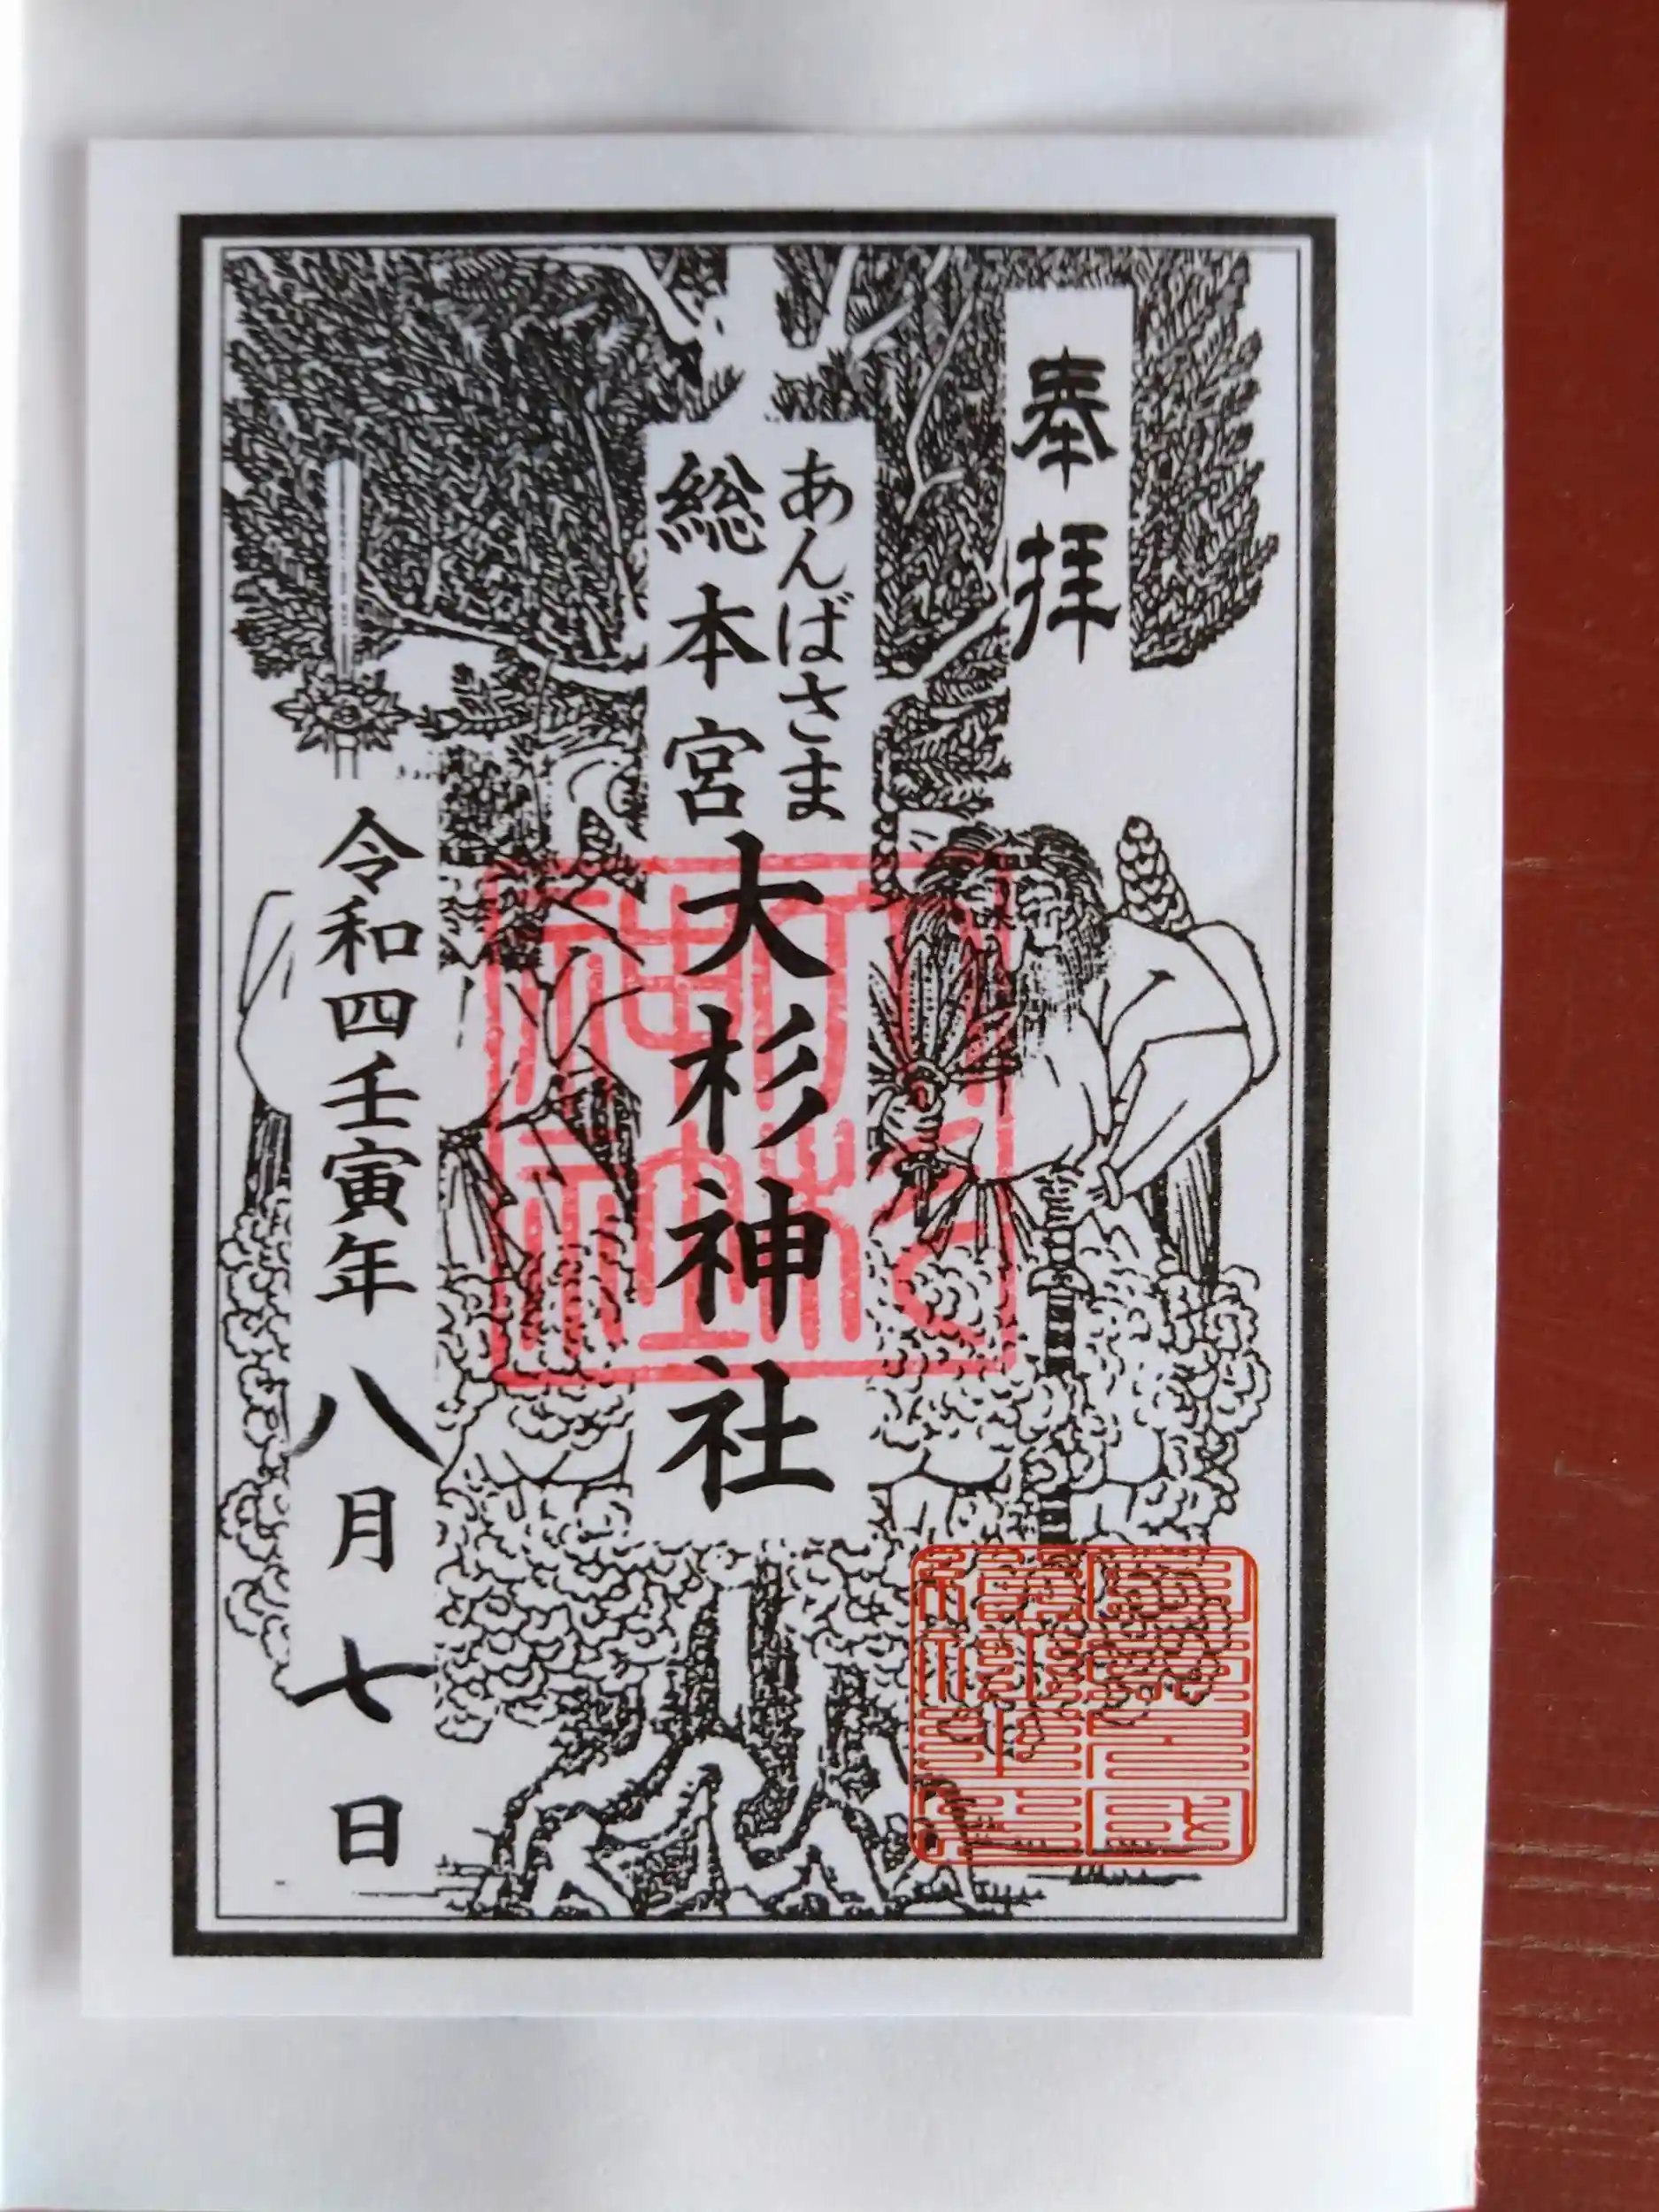 奉拝
あんばさま
総本宮
大杉神社
令和四壬寅年 八月七日